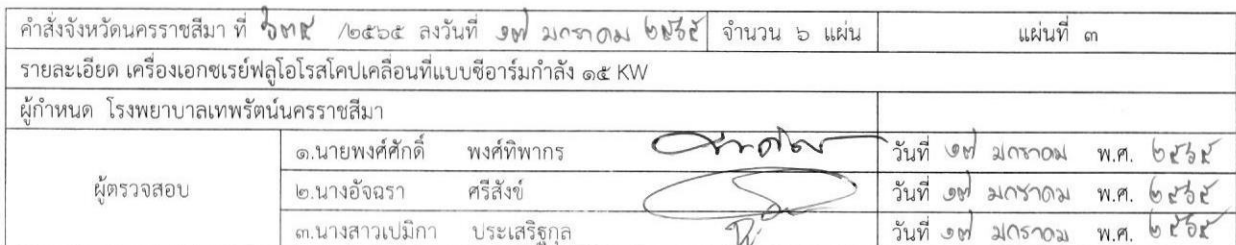 คำสั่งจังหวัดนครราชสีมา ที่ ๖๓๙ /๒๕๖๕ ลงวันที่ ๑๗ มกราคม ๒๕๖๕ จำนวน ๖ แผ่น แผ่นที่ ๓
รายละเอียด เครื่องเอกซเรย์ฟลูโอโรสโคปเคลื่อนที่แบบซีอาร์มกำลัง ๑๕ KW
ผู้กำหนด โรงพยาบาลเทพรัตน์นครราชสีมา
ผู้ตรวจสอบ
๑.นายพงศ์ศักดิ์ พงศ์ทิพากร วันที่ ๑๗ มกราคม พ.ศ. ๒๕๖๕
๒.นางอัจฉรา ศรีสังข์ วันที่ ๑๗ มกราคม พ.ศ. ๒๕๖๕
๓.นางสาวเปมิกา ประเสริฐกุล วันที่ ๑๗ มกราคม พ.ศ. ๒๕๖๕